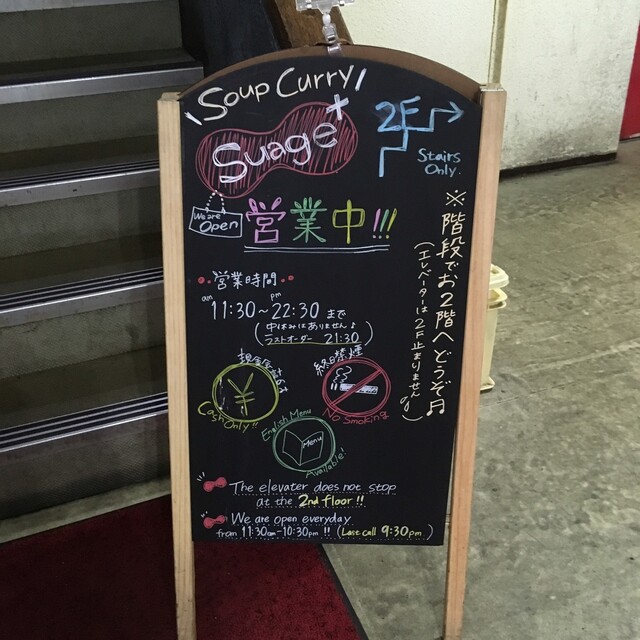 Soup Curry
Suage+
2F
Stairs
Only.
We are
Open
営業中!!!
※階段でお2階へどうぞ♫
(エレベーターは2F止まりません)
営業時間
am
pm
11:30~22:30まで
(中休みはありません♪
ラストオーダー 21:30)
¥
Cash Only!!
終日禁煙
No Smoking
English Menu
Menu
Available!
The elevater does not stop
at the 2nd floor!!
We are open everyday
from 11:30am-10:30pm!! (Last call 9:30pm)